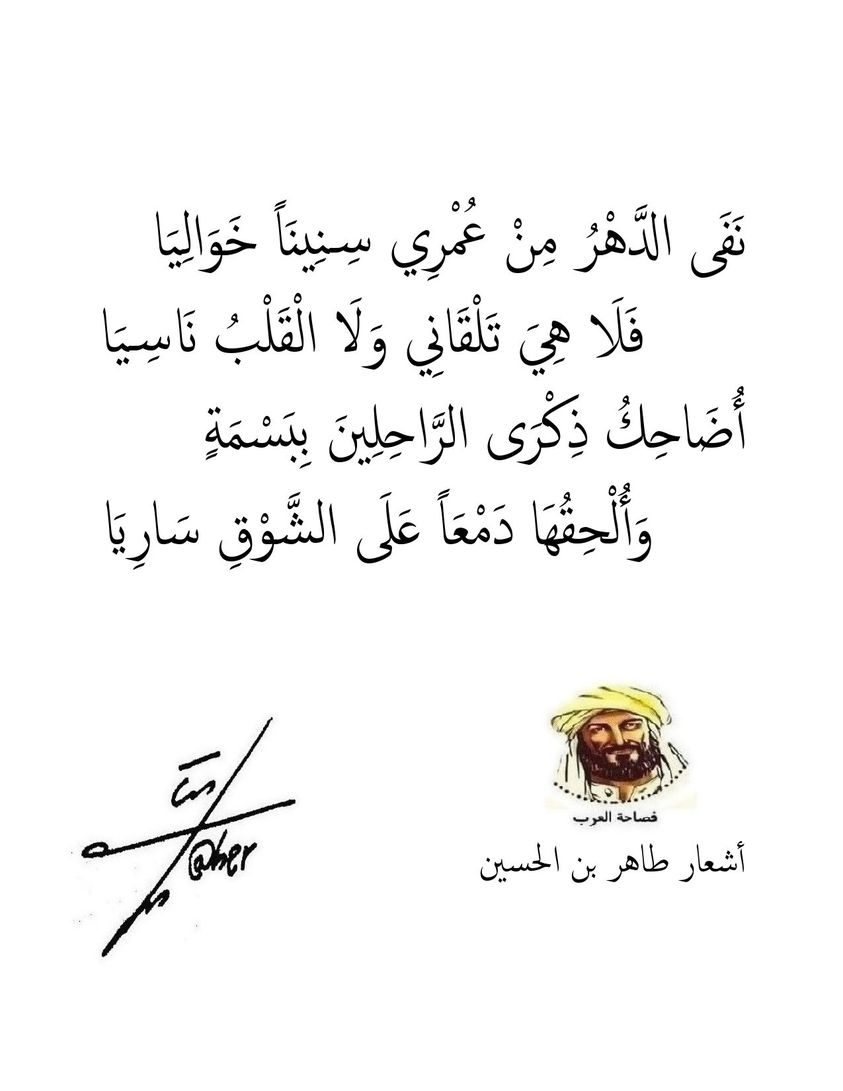 نَفَى الدَّهْرُ مِنْ عُمْرِي سِنِينَاً خَوَالِيَا
فَلَا هِيَ تَلْقَانِي وَلَا الْقَلْبُ نَاسِيَا
أُضَاحِكُ ذِكْرَى الرَّاحِلِينَ بِبَسْمَةٍ
وَأُلْحِقُهَا دَمْعَاً عَلَى الشَّوْقِ سَارِيَا
فصاحة العرب
أشعار طاهر بن الحسين